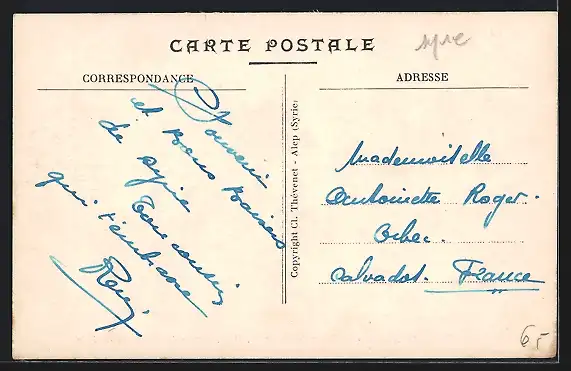 CARTE POSTALE
syrie
CORRESPONDANCE
ADRESSE
Souvenir
et bons baisers
de syrie
Ton cousin
qui t'embrasse
René
Copyright Cl. Thévenet - Alep (Syrie)
Mademoiselle
Antoinette Roger.
Orbec.
Calvados. France
6,-